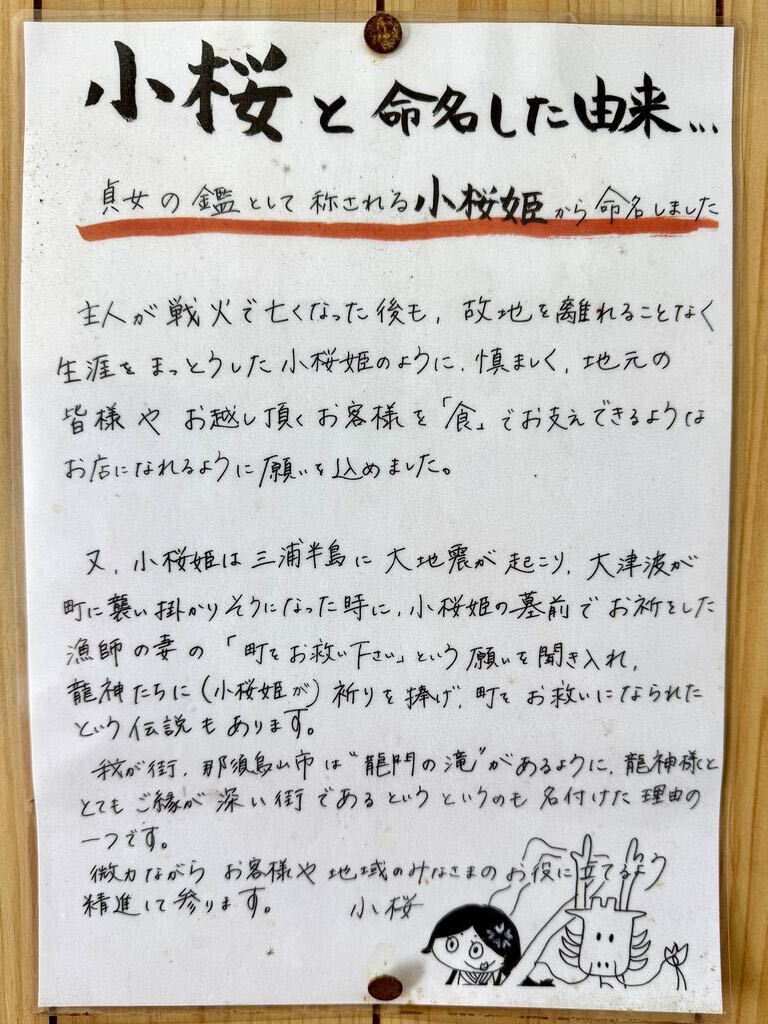 小桜と命名した由来...
貞女の鑑として称される小桜姫から命名しました
主人が戦火で亡くなった後も、故地を離れることなく
生涯をまっとうした小桜姫のように、慎ましく、地元の
皆様やお越し頂くお客様を「食」でお支えできるようは
お店になれるように願いを込めました。
又、小桜姫は三浦半島に大地震が起こり、大津波が
町に襲い掛かりそうになった時に、小桜姫の墓前でお祈をした
漁師の妻の「町をお救い下さい」という願いを聞き入れ、
龍神たちに(小桜姫が)祈りを捧げ、町をお救いになられた
という伝説もあります。
我が街、那須烏山市は"龍門の滝"があるように、龍神様と
とてもご縁が深い街であるというというのも名付けた理由の
一つです。
微力ながらお客様や地域のみなさまのお役に立てるよう
精進して参ります。 小桜